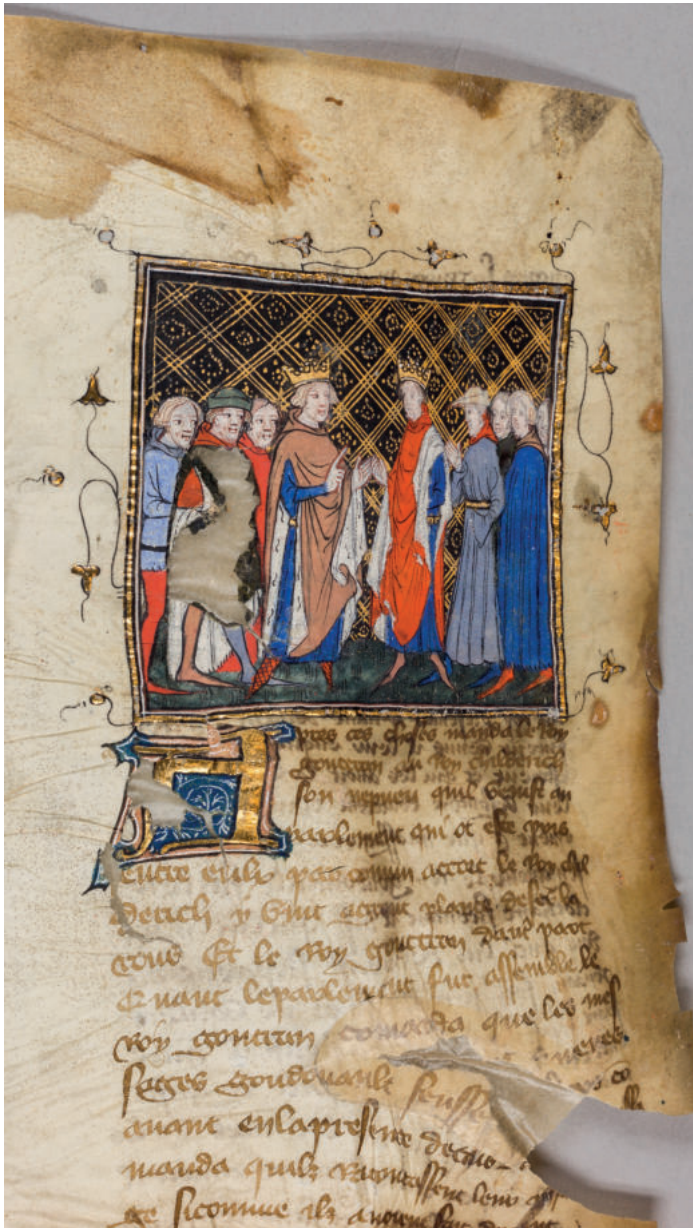 Apres ces choses manda le roy
gontran au roy childerich
son nepueu quil venist au
parlement qui ot este pris
entre eulx par comun accort le roy chil
derich y vint a grant plante de
Et le roy gontran
Quant le parlement fut assemble le
roy gontran comanda que les mes
sages gondouault feuss
auant en la presence de
manda quilz racontassent leur
ge si comme ilz